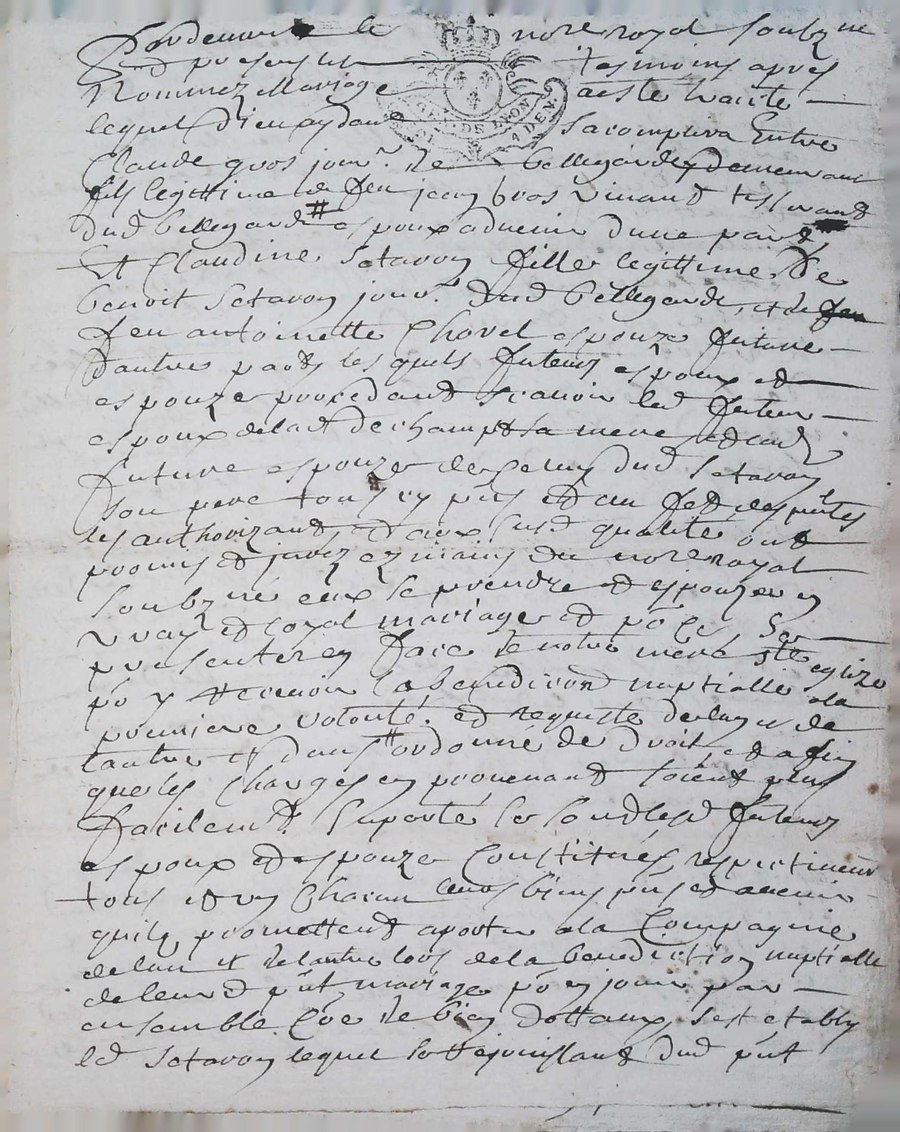 Pardevant le nore royal soubzne
Et presents tesmoins apres
Nommez Mariage a este traite
GEN. DE LYON
4 DEN.
lequel Dieu aydant sacomplira Entre
Claude gros jour. de bellegarde demeurant
fils legittime de feu jean bros vivant tisserand
dud bellegarde # espoux advenir dune part
Et Claudine Setavoy fille legittime De
benoit Setavoy jour. dud bellegarde, et de feu
feu antoinette Chovel espouze future
dautre part les quels futeurs espoux et
espouze procedant scavoir led futeur
espoux de lad dechamps sa mere et lad
future espouze de celuy dud Setavoy
son pere tous cy pnts et au fet des pntes
les authorizant, et aux susd qualités ont
promis et jurez ez mains du nore royal
soubzné eux se prendre et espouzer en
vray et loyal mariage et po ce se
presenter en face de notre mere ste eglize
po y recevoir la benediction nuptialle a la
premiere volonté, et requiste de lun u de
lautre et dans # ordonné de droit, et afin
que les Charges en provenant soient plus
facilemt. suporté se sont lesd futeurs
espoux et espouze Constitués respectivemt
tous et un Chacun leurs biens pnts et avenir
quils promettent aporter a la Compagnie
de lun et de lautre lors de la benediction nuptialle
de leurd pnt mariage po en jouir par
ensemble Que de bien Dottaux, sest etably
led Setavoy lequel se rejouissant dud pnt